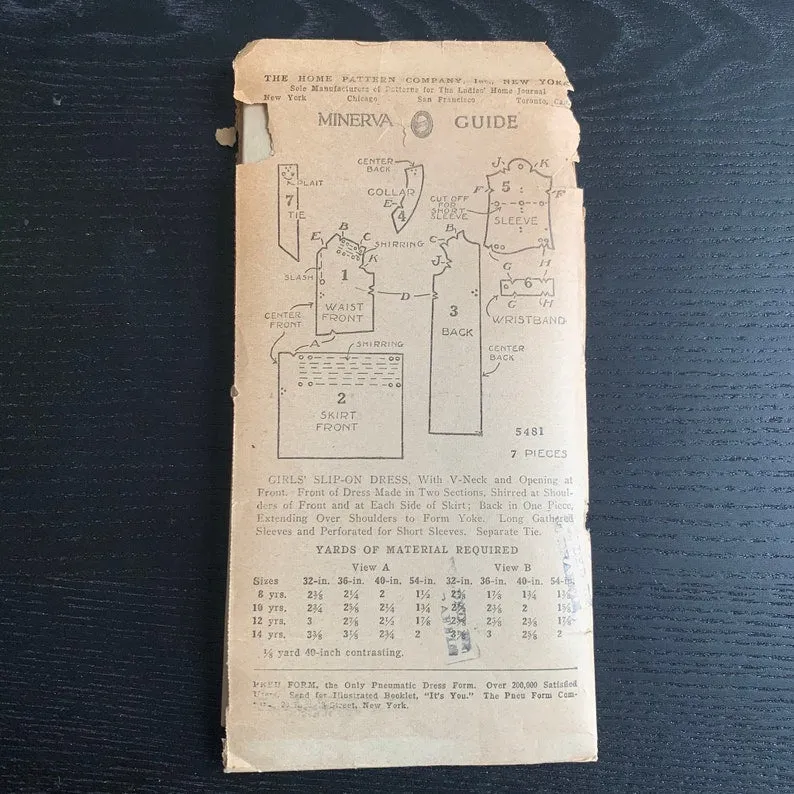 THE HOME PATTERN COMPANY, Inc., NEW YORK
Sole Manufacturers of Patterns for The Ladies' Home Journal
New York Chicago San Francisco Toronto, Ca
MINERVA GUIDE
PLAIT
7
TIE
CENTER BACK
COLLAR
E
4
J K
F F
5
CUT OFF FOR SHORT SLEEVE
SLEEVE
G H
6
G H
WRISTBAND
E B C
SHIRRING
K
SLASH
1
WAIST FRONT
CENTER FRONT
A
D
B
C
J
3
BACK
CENTER BACK
SHIRRING
2
SKIRT FRONT
5481
7 PIECES
GIRLS' SLIP-ON DRESS, With V-Neck and Opening at
Front. Front of Dress Made in Two Sections, Shirred at Shoul-
ders of Front and at Each Side of Skirt; Back in One Piece,
Extending Over Shoulders to Form Yoke. Long Gathered
Sleeves and Perforated for Short Sleeves. Separate Tie.
YARDS OF MATERIAL REQUIRED
View A View B
Sizes 32-in. 36-in. 40-in. 54-in. 32-in. 36-in. 40-in. 54-in.
8 yrs. 2⅜ 2¼ 2 1½ 1⅞ 1¾
10 yrs. 2¾ 2⅝ 2¼ 1¾ 2⅜ 2 1⅝
12 yrs. 3 2⅞ 2½ 1⅞ 2⅝ 2⅜ 1⅞
14 yrs. 3⅜ 3⅛ 2¾ 2 3 2⅝ 2
⅛ yard 40-inch contrasting.
PNEU FORM, the Only Pneumatic Dress Form. Over 200,000 Satisfied
Users. Send for Illustrated Booklet, "It's You." The Pneu Form Com-
Street, New York.